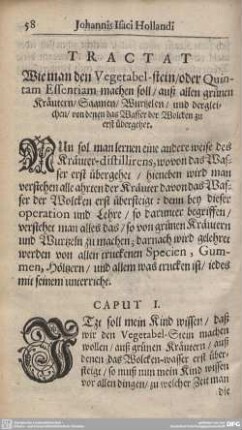 58 Johannis Isaci Hollandi
TRACTAT
Wie man den Vegetabel-stein/oder Quin-
tam Essentiam machen soll/ auß allen grünen
Kräutern/ Saamen/ Wurtzelen/ und derglei-
chen/ von denen das Wasser der Wolcken zu
erst übergehet.
NUn sol man lernen eine andere weise des
Kräuter-distillirens, wovon das Was-
ser erst übergehet/ hieneben wird man
verstehen alle ahrten der Kräuter davon das Was-
ser der Wolcken erst übersteigt: denn bey dieser
operation und Lehre/ so darunter begriffen/
verstehet man alles das/ so von grünen Kräutern
und Wurtzeln zu machen; darnach wird gelehret
werden von allen truckenen Specien, Gum-
men, Höltzern/ und allem was trucken ist/ iedes
mit seinem unterricht.
CAPUT I.
JTzt soll mein Kind wissen/ daß
wir den Vegetabel-Stein machen
wollen/ auß grünen Kräutern/ auß
denen das Wolcken-wasser erst über-
steige/ so muß nun mein Kind wissen
vor allen dingen/ zu welcher Zeit man
die